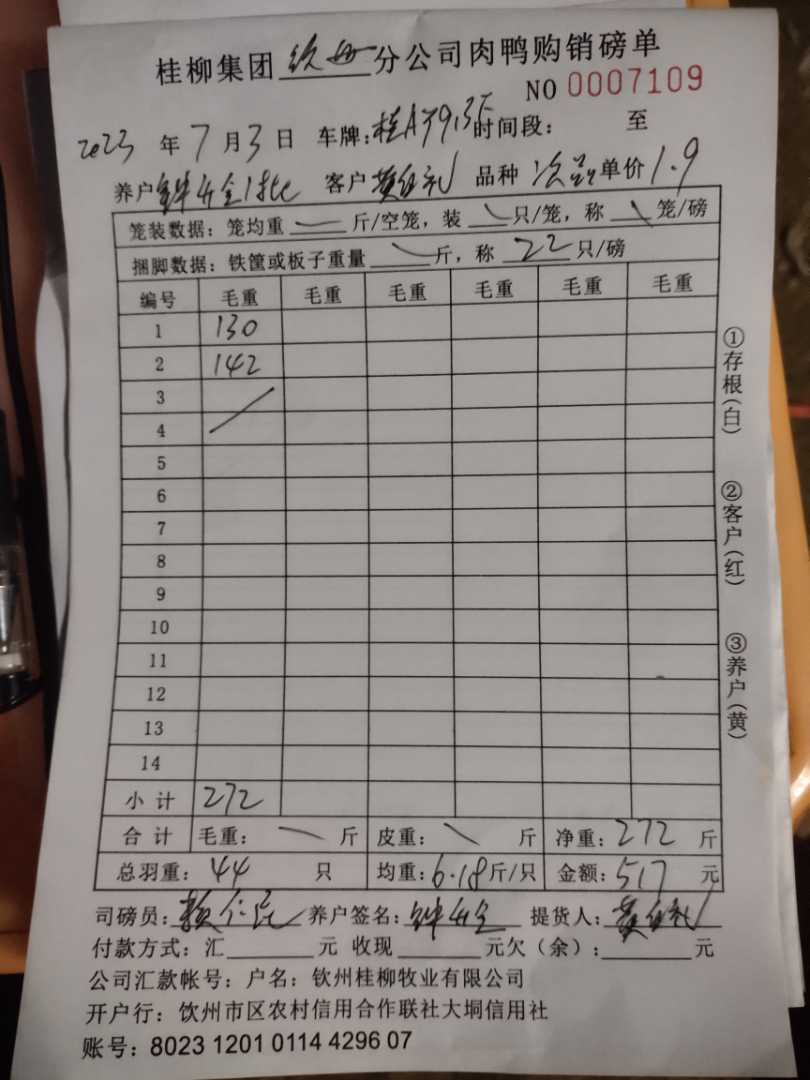 桂柳集团钦州分公司肉鸭购销磅单
NO 0007109
2023 年 7 月 3 日 车牌: 时间段: 至
养户 客户 品种 次品 单价 1.9
笼装数据：笼均重 — 斤/空笼，装 \ 只/笼，称 \ 笼/磅
捆脚数据：铁筐或板子重量 \ 斤，称 22 只/磅
编号 毛重 毛重 毛重 毛重 毛重 毛重
1 130
2 142
3
4
5
6
7
8
9
10
11
12
13
14
小 计 272
合 计 毛重: — 斤 皮重: \ 斤 净重: 272 斤
总羽重: 44 只 均重: 6.18 斤/只 金额: 517 元
司磅员: 养户签名: 提货人:
付款方式：汇 元 收现 元欠（余）: 元
公司汇款帐号：户名：钦州桂柳牧业有限公司
开户行：饮州市区农村信用合作联社大垌信用社
账号: 8023 1201 0114 4296 07
①存根(白)
②客户(红)
③养户(黄)